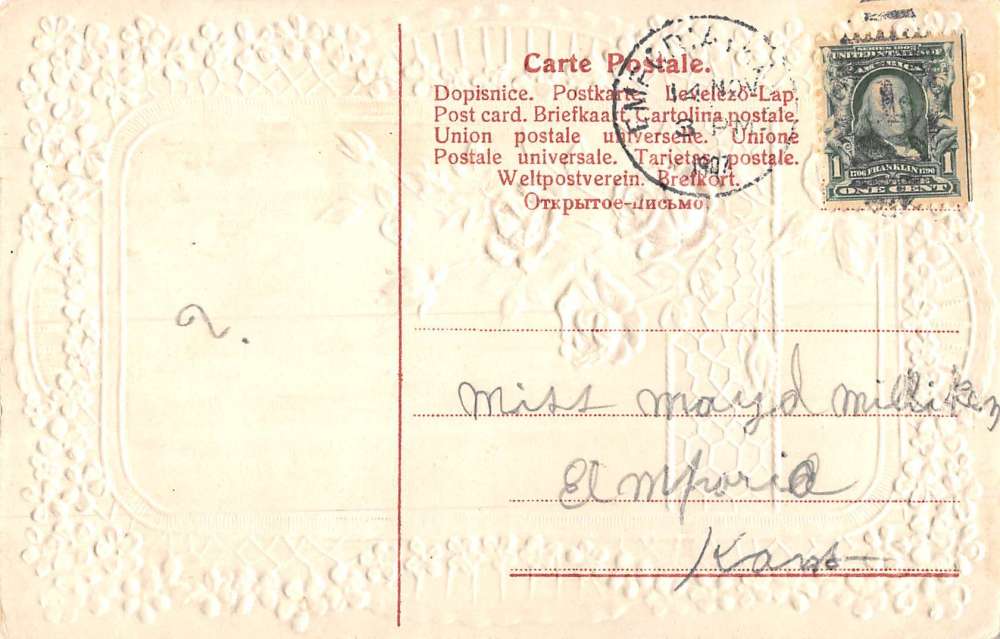 Carte Postale.
Dopisnice. Postkarte. Levelező-Lap.
Post card. Briefkaart. Cartolina postale.
Union postale universelle. Unione
Postale universale. Tarjetas postale.
Weltpostverein. Brefkort.
Открытое-письмо.
EMPORIA
14 NOV
3 PM
1907
SERIES 1902
UNITED STATES OF
AMERICA
1 1706 FRANKLIN 1790 1
ONE CENT
2.
Miss Mayd Milliken
Emporia
Kans